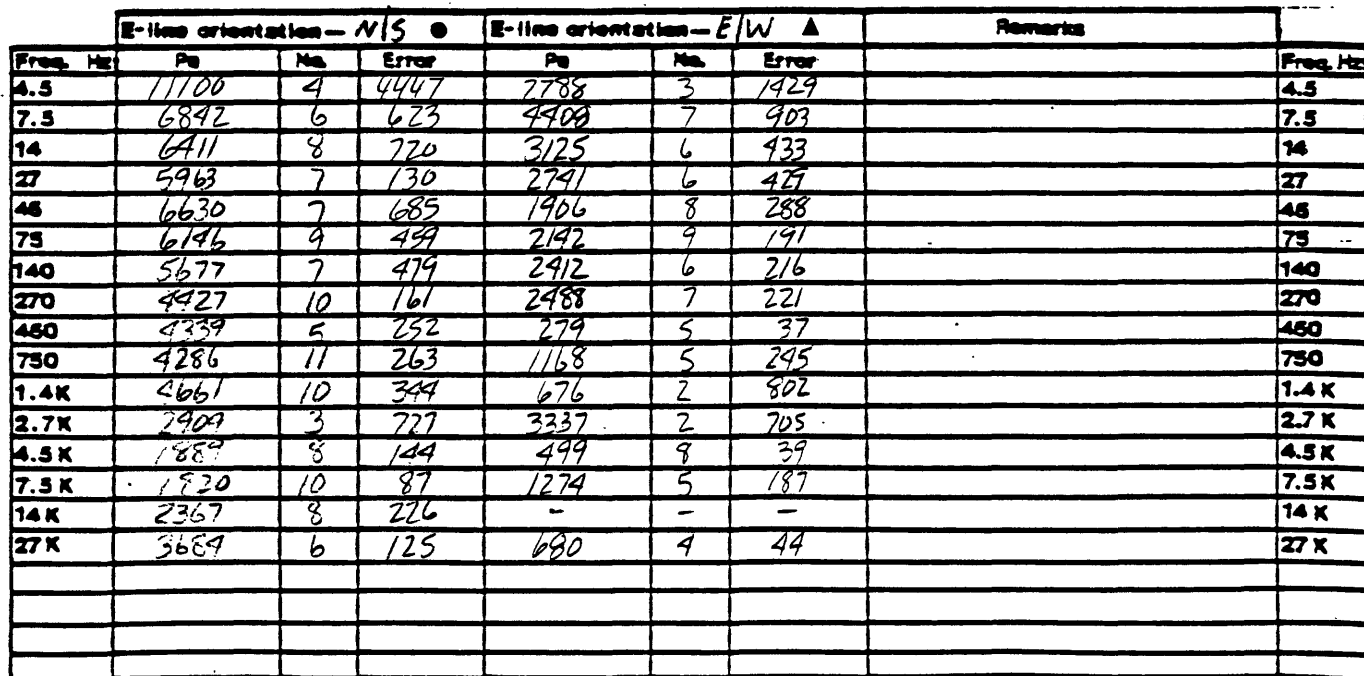 E-line orientation — N/S ● E-line orientation — E/W ▲ Remarks
Freq. Hz Pa No. Error Pa No. Error Freq. Hz
4.5 11100 4 4447 2788 3 1429 4.5
7.5 6842 6 623 4408 7 903 7.5
14 6411 8 720 3125 6 433 14
27 5963 7 130 2741 6 429 27
45 6630 7 685 1906 8 288 45
75 6146 9 459 2142 9 191 75
140 5677 7 479 2412 6 216 140
270 4427 10 161 2488 7 221 270
450 4339 5 252 279 5 37 450
750 4286 11 263 1168 5 245 750
1.4K 4661 10 344 676 2 802 1.4 K
2.7K 2909 3 727 3337 2 705 2.7 K
4.5 K 1889 8 144 499 8 39 4.5 K
7.5 K 10 87 1274 5 187 7.5 K
14 K 2367 8 226 - - - 14 K
27 K 3684 6 125 680 4 44 27 K